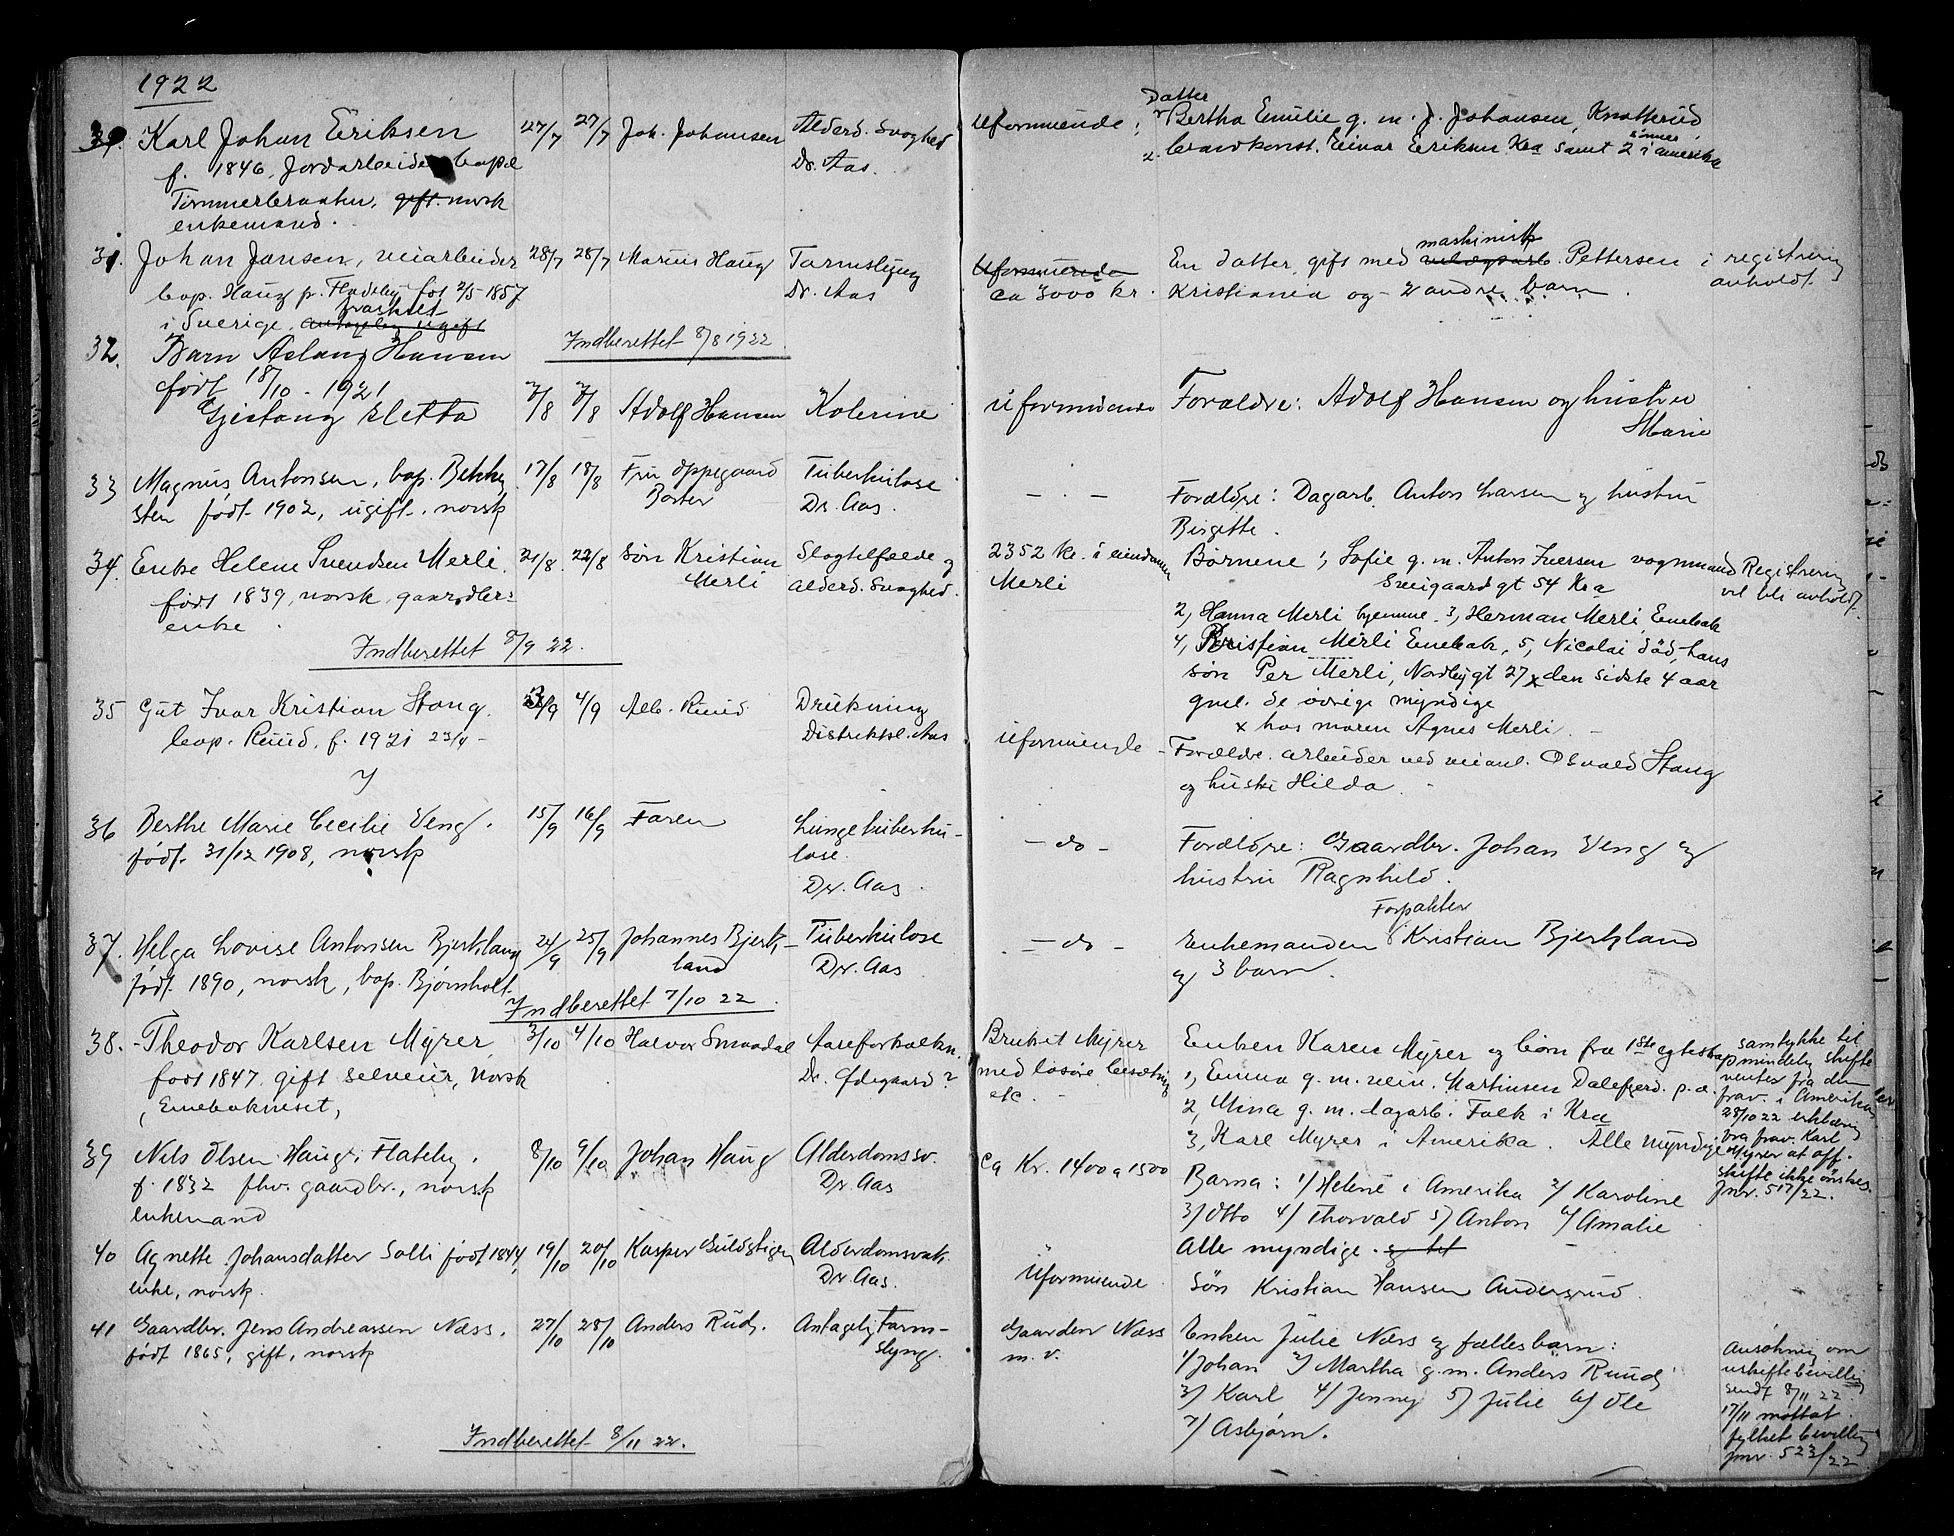 1922
30. Karl Johan Eriksen 27/7 27/7 Joh. Johansen Alderd. Svaghed Uformuende 1. Datter Bertha Emilie g. m. J. Johansen, Knatterud,
f. 1846, Jordarbeider bopæl Dr. Aas. 2. Einar Eriksen Kra samt 2 sønner i Amerika
norsk
enkemand.
31. Johan Jansen, 28/7 28/7 Marius Haug Tarmslyng Uformuende En datter, gift med maskinist Pettersen i registrering
bop. Haug p. Flateby født 2/5 1857 Dr. Aas ca 3000 kr. Kristiania og 2 andre barn. avholdt.
i Sverige.
Indberettet 8/8 1922
32. Barn Aslaug Hansen
født 18/10 - 1921
7/8 7/8 Adolf Hansen Kolerine uformuende Forældre: Adolf Hansen og hustru
Marie
33 Magnus Antonsen, bop. Bekke 17/8 18/8 Fru Oppegaard Tuberkulose - . - Forældre: Dagarb. Anton Larsen og hustru
sten født 1902, ugift, norsk Dr. Aas. Birgitte.
34. Enke Helene Svendsen Merli 21/8 22/8 Søn Kristian Slagtilfælde og 2352 kr. i eiendommen Børnene: 1, Sofie g. m. Anton Iversen vognmand Registrering
født 1839, norsk, gaardbr: Merli alderd. Svaghed. Merli Sveigaardgt 54 Kra vil bli avholdt.
enke 2, Hanna Merli hjemme. 3, Herman Merli Enebak
Indberettet 8/9 22. 4, Kristian Merli Enebak, 5, Nicolai død, hans
søn Per Merli, Nordbygt 27 x den sidste 4 aar
gml. de øvrige myndige
x hos moren Agnes Merli.
35 Gut Ivar Kristian Stang. 3/9 4/9 Alb. Ruud Drukning uformuende - Forældre. arbeider ved Osvald Stang
bop. Ruud, f. 1921 23/4 - Distriktsl. Aas og hustru Hilda.
36 Berthe Marie Cecilie Veng. 15/9 16/9 Faren Lungetuberku- - do - Forældre: Gaardbr. Johan Veng og
født 31/12 1908, norsk lose. hustru Ragnhild.
Dr. Aas.
37. Helga Lovise Antonsen Bjerkland 24/9 25/9 Johannes Bjerk- Tuberkulose - do - Enkemanden Forpakter Kristian Bjerkland
født 1890, norsk, bop. Bjørnholt land Dr. Aas og 3 barn.
Indberettet 7/10 22
38. Theodor Karlsen Myrer 3/10 4/10 Halvor Smaadal Aareforkalkn. Bruket Myrer Enken Karen Myrer og børn fra 1ste egteskap
født 1847. gift selveier, norsk Dr. Ødegaard? med løsøre besætning 1, Emma g. m. Martinsen Dalefjerd.
Enebakneset, etc. 2, Mina g. m. dagarb. Falk i Kra
3, Karl Myrer i Amerika. Alle myndige
samtykke til
mindelig skifte
ventes fra den
frav. i Amerika
28/10 22 erklæring
fra frav. Karl
Myrer at off.
skifte ikke ønskes.
Jnr. 517/22.
39 Nils Olsen Haug, Flateby. 8/10 9/10 Johan Haug Alderdomssv. ca Kr. 1400 a 1500 Barna: 1/ Helene i Amerika 2/ Karoline
f. 1832 fhv. gaardbr., norsk Dr. Aas 3/ Otto 4/ Thorvald 5/ Anton 6/ Amalie
enkemand Alle myndige.
40 Agnette Johansdatter Solli født 1844, 19/10 20/10 Kasper Guldstigen Alderdomsvak. Uformuende Søn Kristian Hansen Andersrud.
enke, norsk. Dr. Aas.
41 Gaardbr. Jens Andreassen Næss. 27/10 28/10 Anders Rud. Antagelig Tarm- Gaarden Næss Enken Julie Næss og fællesbarn:
født 1865, gift, norsk slyng. m. v. 1/ Johan 2/ Martha g. m. Anders Ruud
3/ Karl 4/ Jenny 5/ Julie 6/ Ole
7/ Asbjørn.
Ansøkning om
uskiftebevilling
sendt 8/11 22
17/11 mottat
fylket bevilling
jnr. 523/22
Indberettet 8/11 22.